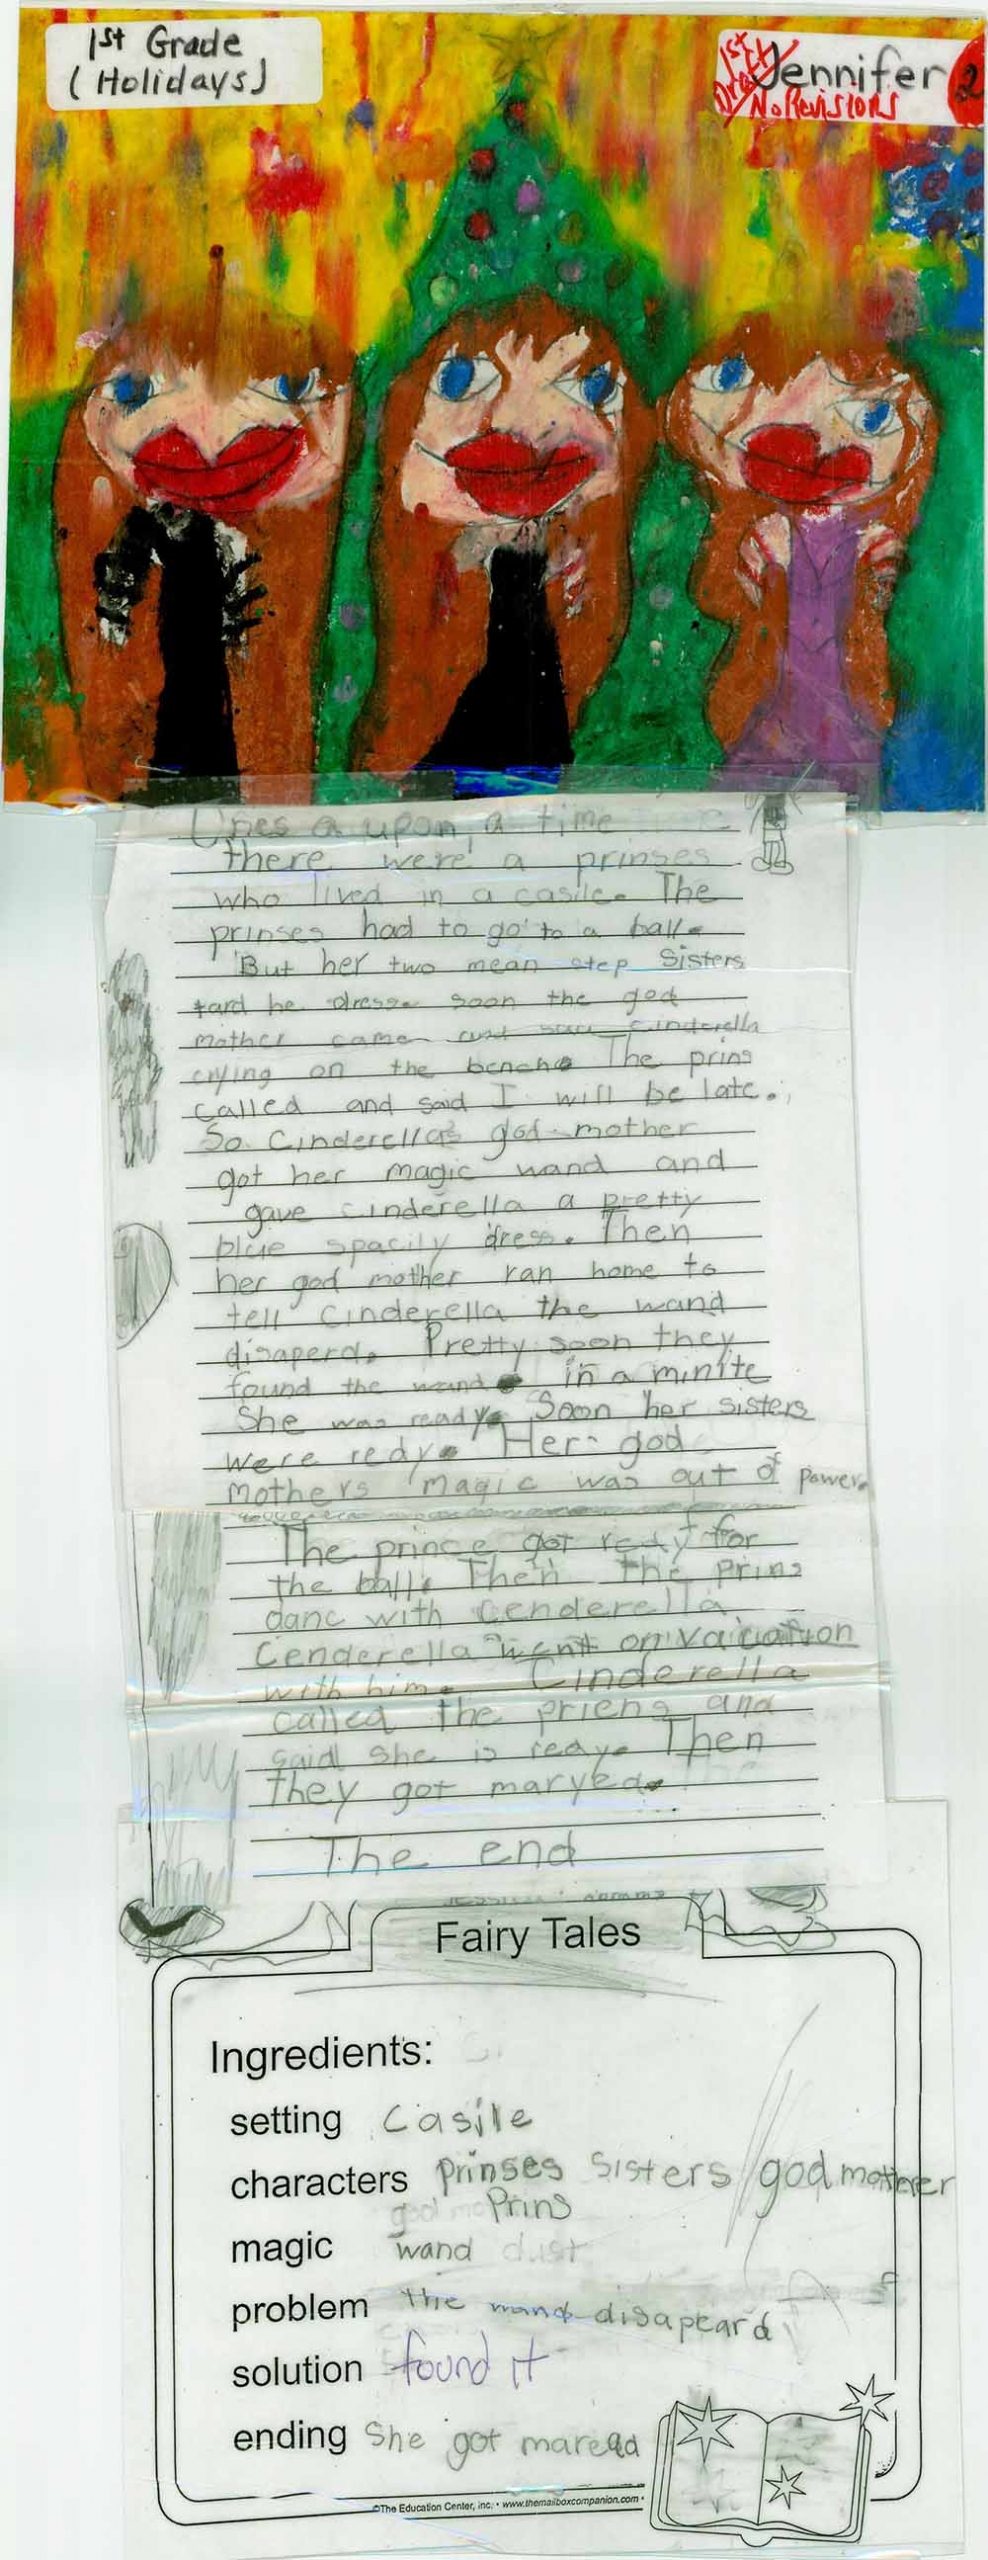 1st Grade
(Holidays)
Jennifer 2
1st
No Revisions
Ones a upon a time
there were a prinses
who lived in a casile. The
prinses had to go to a ball.
But her two mean step Sisters
tard he dress. soon the god
mother came and saw cinderella
crying on the bench. The prins
called and said I will be late.
So Cinderellas god mother
got her magic wand and
gave cinderella a pretty
blue spacily dress. Then
her god mother ran home to
tell Cinderella the wand
disaperd. Pretty soon they
found the wand in a minite
She was ready. Soon her sisters
were redy. Her god
mothers magic was out of power.
The prince got redy for
the ball. Then the prins
danc with Cenderella
Cenderella went on vacation
with him. Cinderella
called the priens and
said she is reay. Then
they got maryed.
The end
Fairy Tales
Ingredients:
setting Casile
characters Prinses Sisters god motherer
Prins
magic wand dust
problem the wand disapeard
solution found it
ending She got maread
©The Education Center, Inc. • www.themailboxcompanion.com •